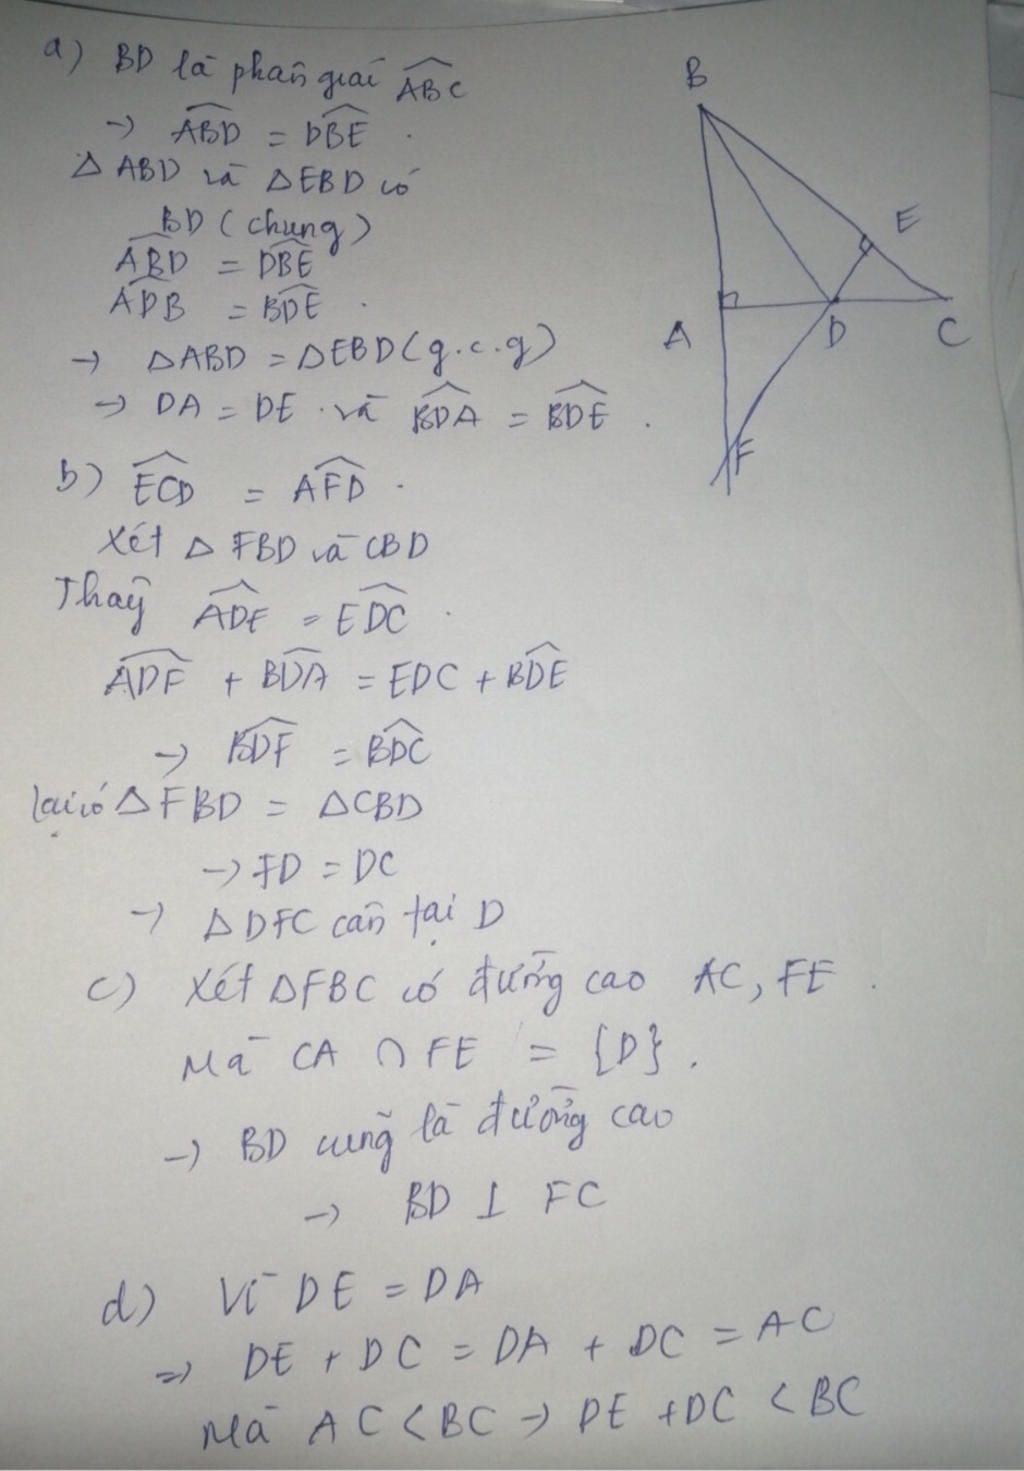 a) BD là phân giác \widehat{ABC}
→ \widehat{ABD} = \widehat{DBE} .
Δ ABD và Δ EBD có
BD (chung)
\widehat{ABD} = \widehat{DBE}
\widehat{ADB} = \widehat{BDE} .
→ Δ ABD = Δ EBD (g.c.g)
→ DA = DE . và \widehat{BDA} = \widehat{BDE} .
b) \widehat{ECD} = \widehat{AFD} .
Xét Δ FBD và CBD
Thấy \widehat{ADF} = \widehat{EDC} .
\widehat{ADF} + \widehat{BDA} = EDC + \widehat{BDE}
→ \widehat{BDF} = \widehat{BDC}
lại có Δ FBD = Δ CBD
→ FD = DC
→ Δ DFC cân tại D
c) Xét Δ FBC có đường cao AC, FE .
Mà CA ∩ FE = {D} .
→ BD cũng là đường cao
→ BD ⊥ FC
d) Vì DE = DA
=> DE + DC = DA + DC = AC
Mà AC < BC → DE + DC < BC
B
E
A
D
C
F